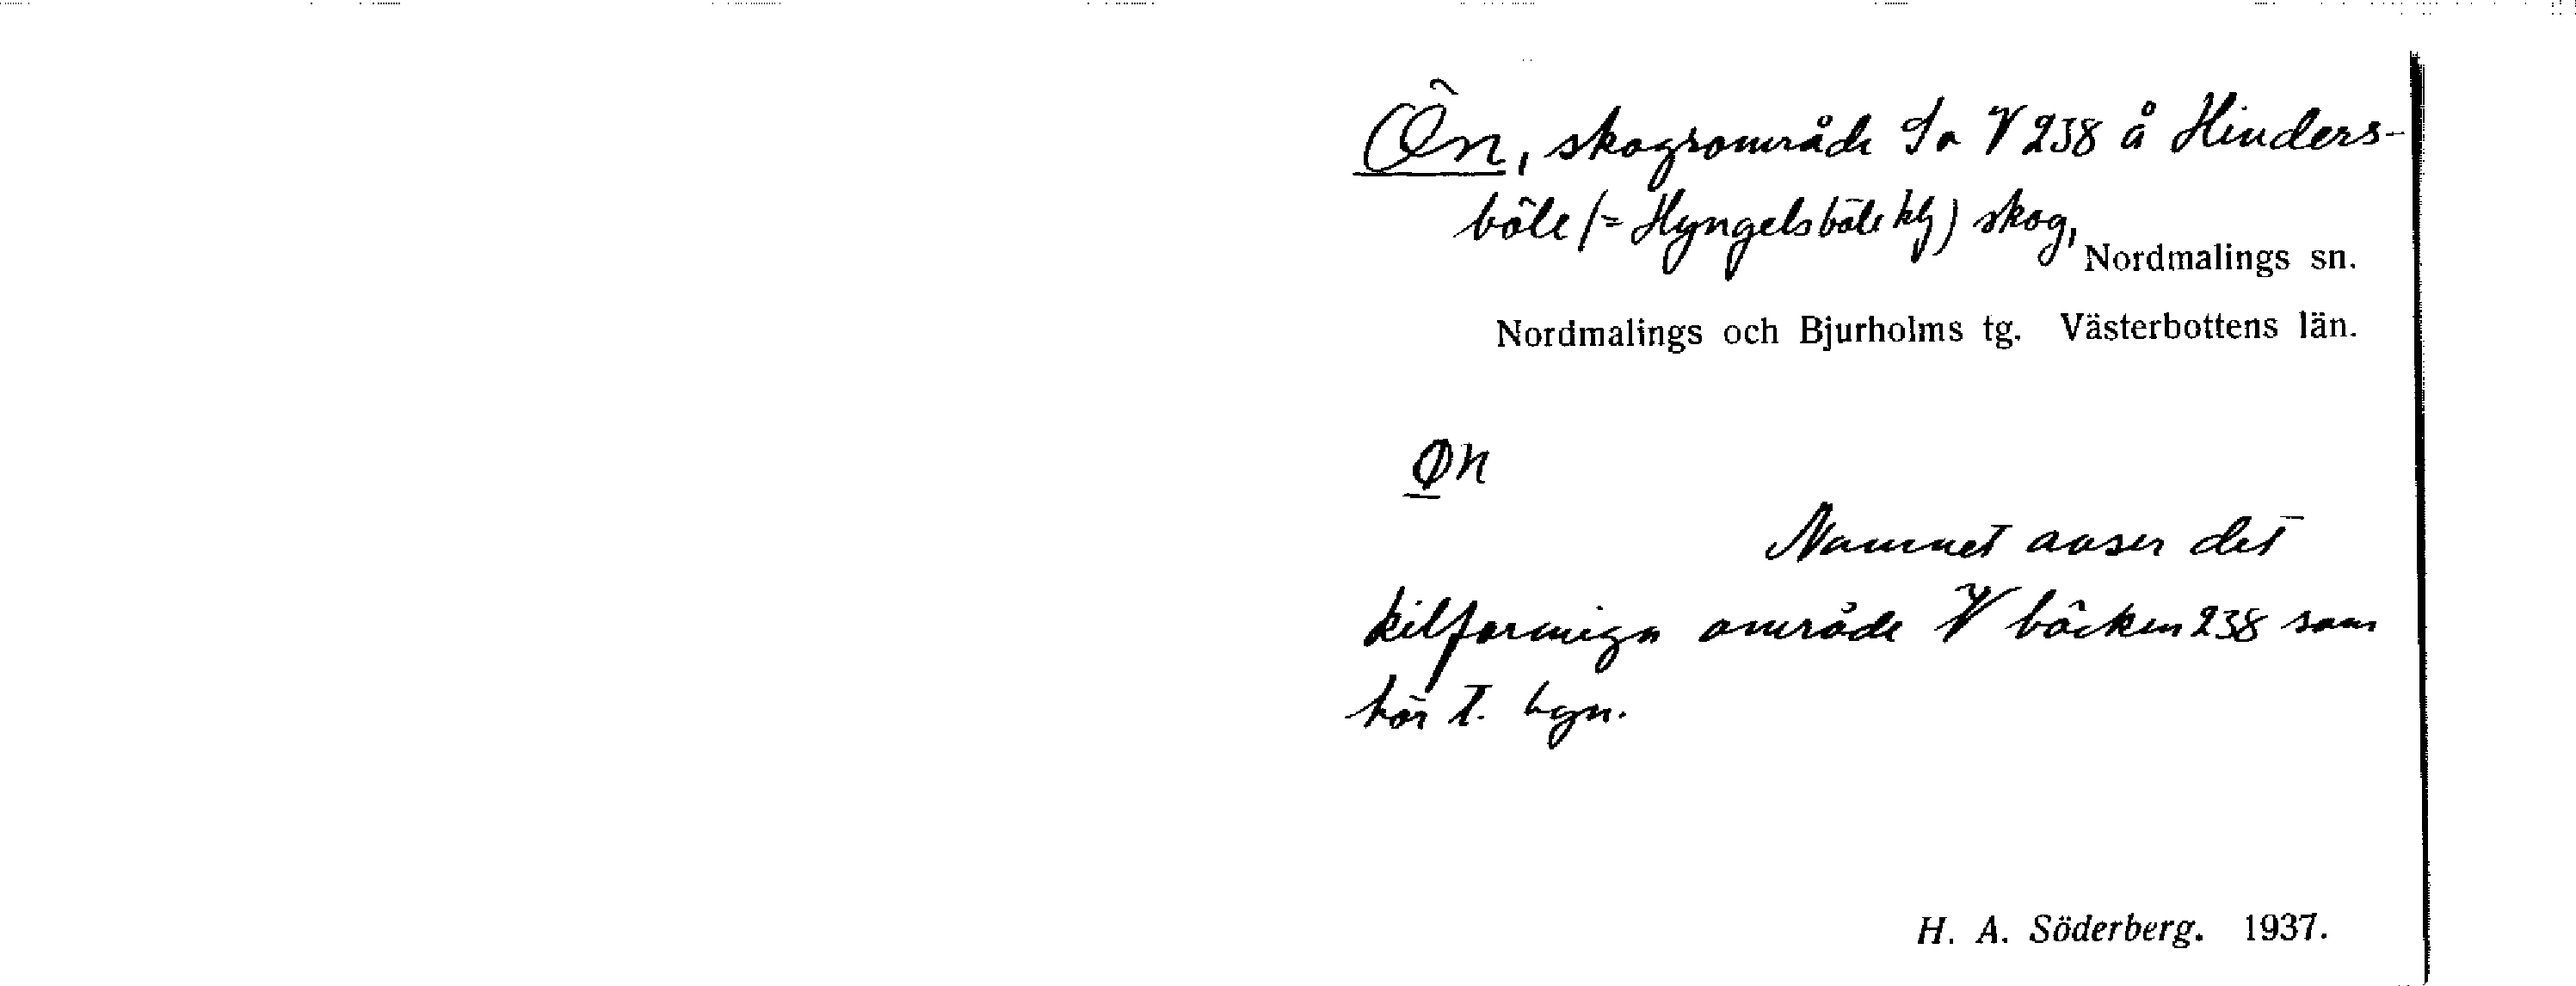 Ön, skogsområde So V 238 å Hinders-
böle (= Hyngelsböle hg) skog,
Nordmalings sn.
Nordmalings och Bjurholms tg. Västerbottens län.
Øn
Namnet avser det
kilformiga område V bäcken 238 som
hör t. hgn.
H. A. Söderberg. 1937.